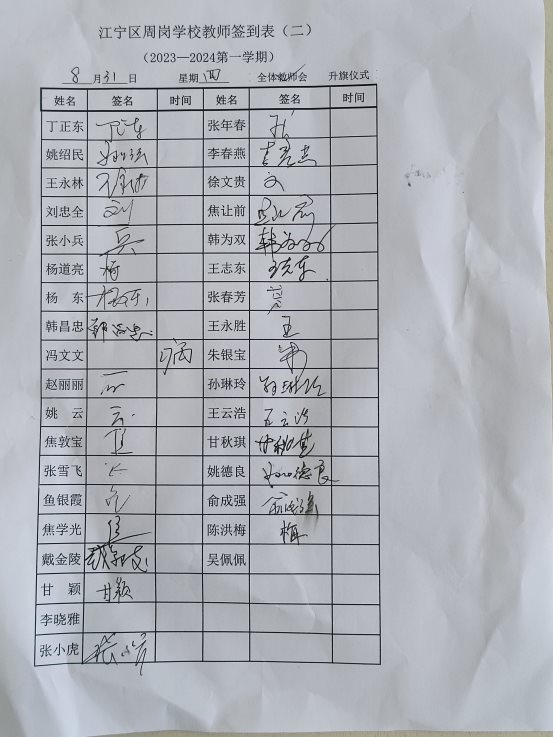 江宁区周岗学校教师签到表（二）
（2023—2024第一学期）
8 月 31 日 星期 四 全体教师会 升旗仪式
姓名 签名 时间 姓名 签名 时间
丁正东 张年春
姚绍民 李春燕 李春燕
王永林 徐文贵 文
刘忠全 刘 焦让前
张小兵 兵 韩为双 韩为双
杨道亮 杨 王志东 王志东
杨东 杨东 张春芳
韩昌忠 韩昌忠 王永胜 王
冯文文 病 朱银宝 朱
赵丽丽 孙琳玲 孙琳玲
姚云 云 王云浩 王云浩
焦敦宝 甘秋琪 甘秋琪
张雪飞 姚德良 姚德良
鱼银霞 俞成强 俞成强
焦学光 陈洪梅 梅
戴金陵 戴金陵 吴佩佩
甘颖 甘颖
李晓雅
张小虎 张小虎